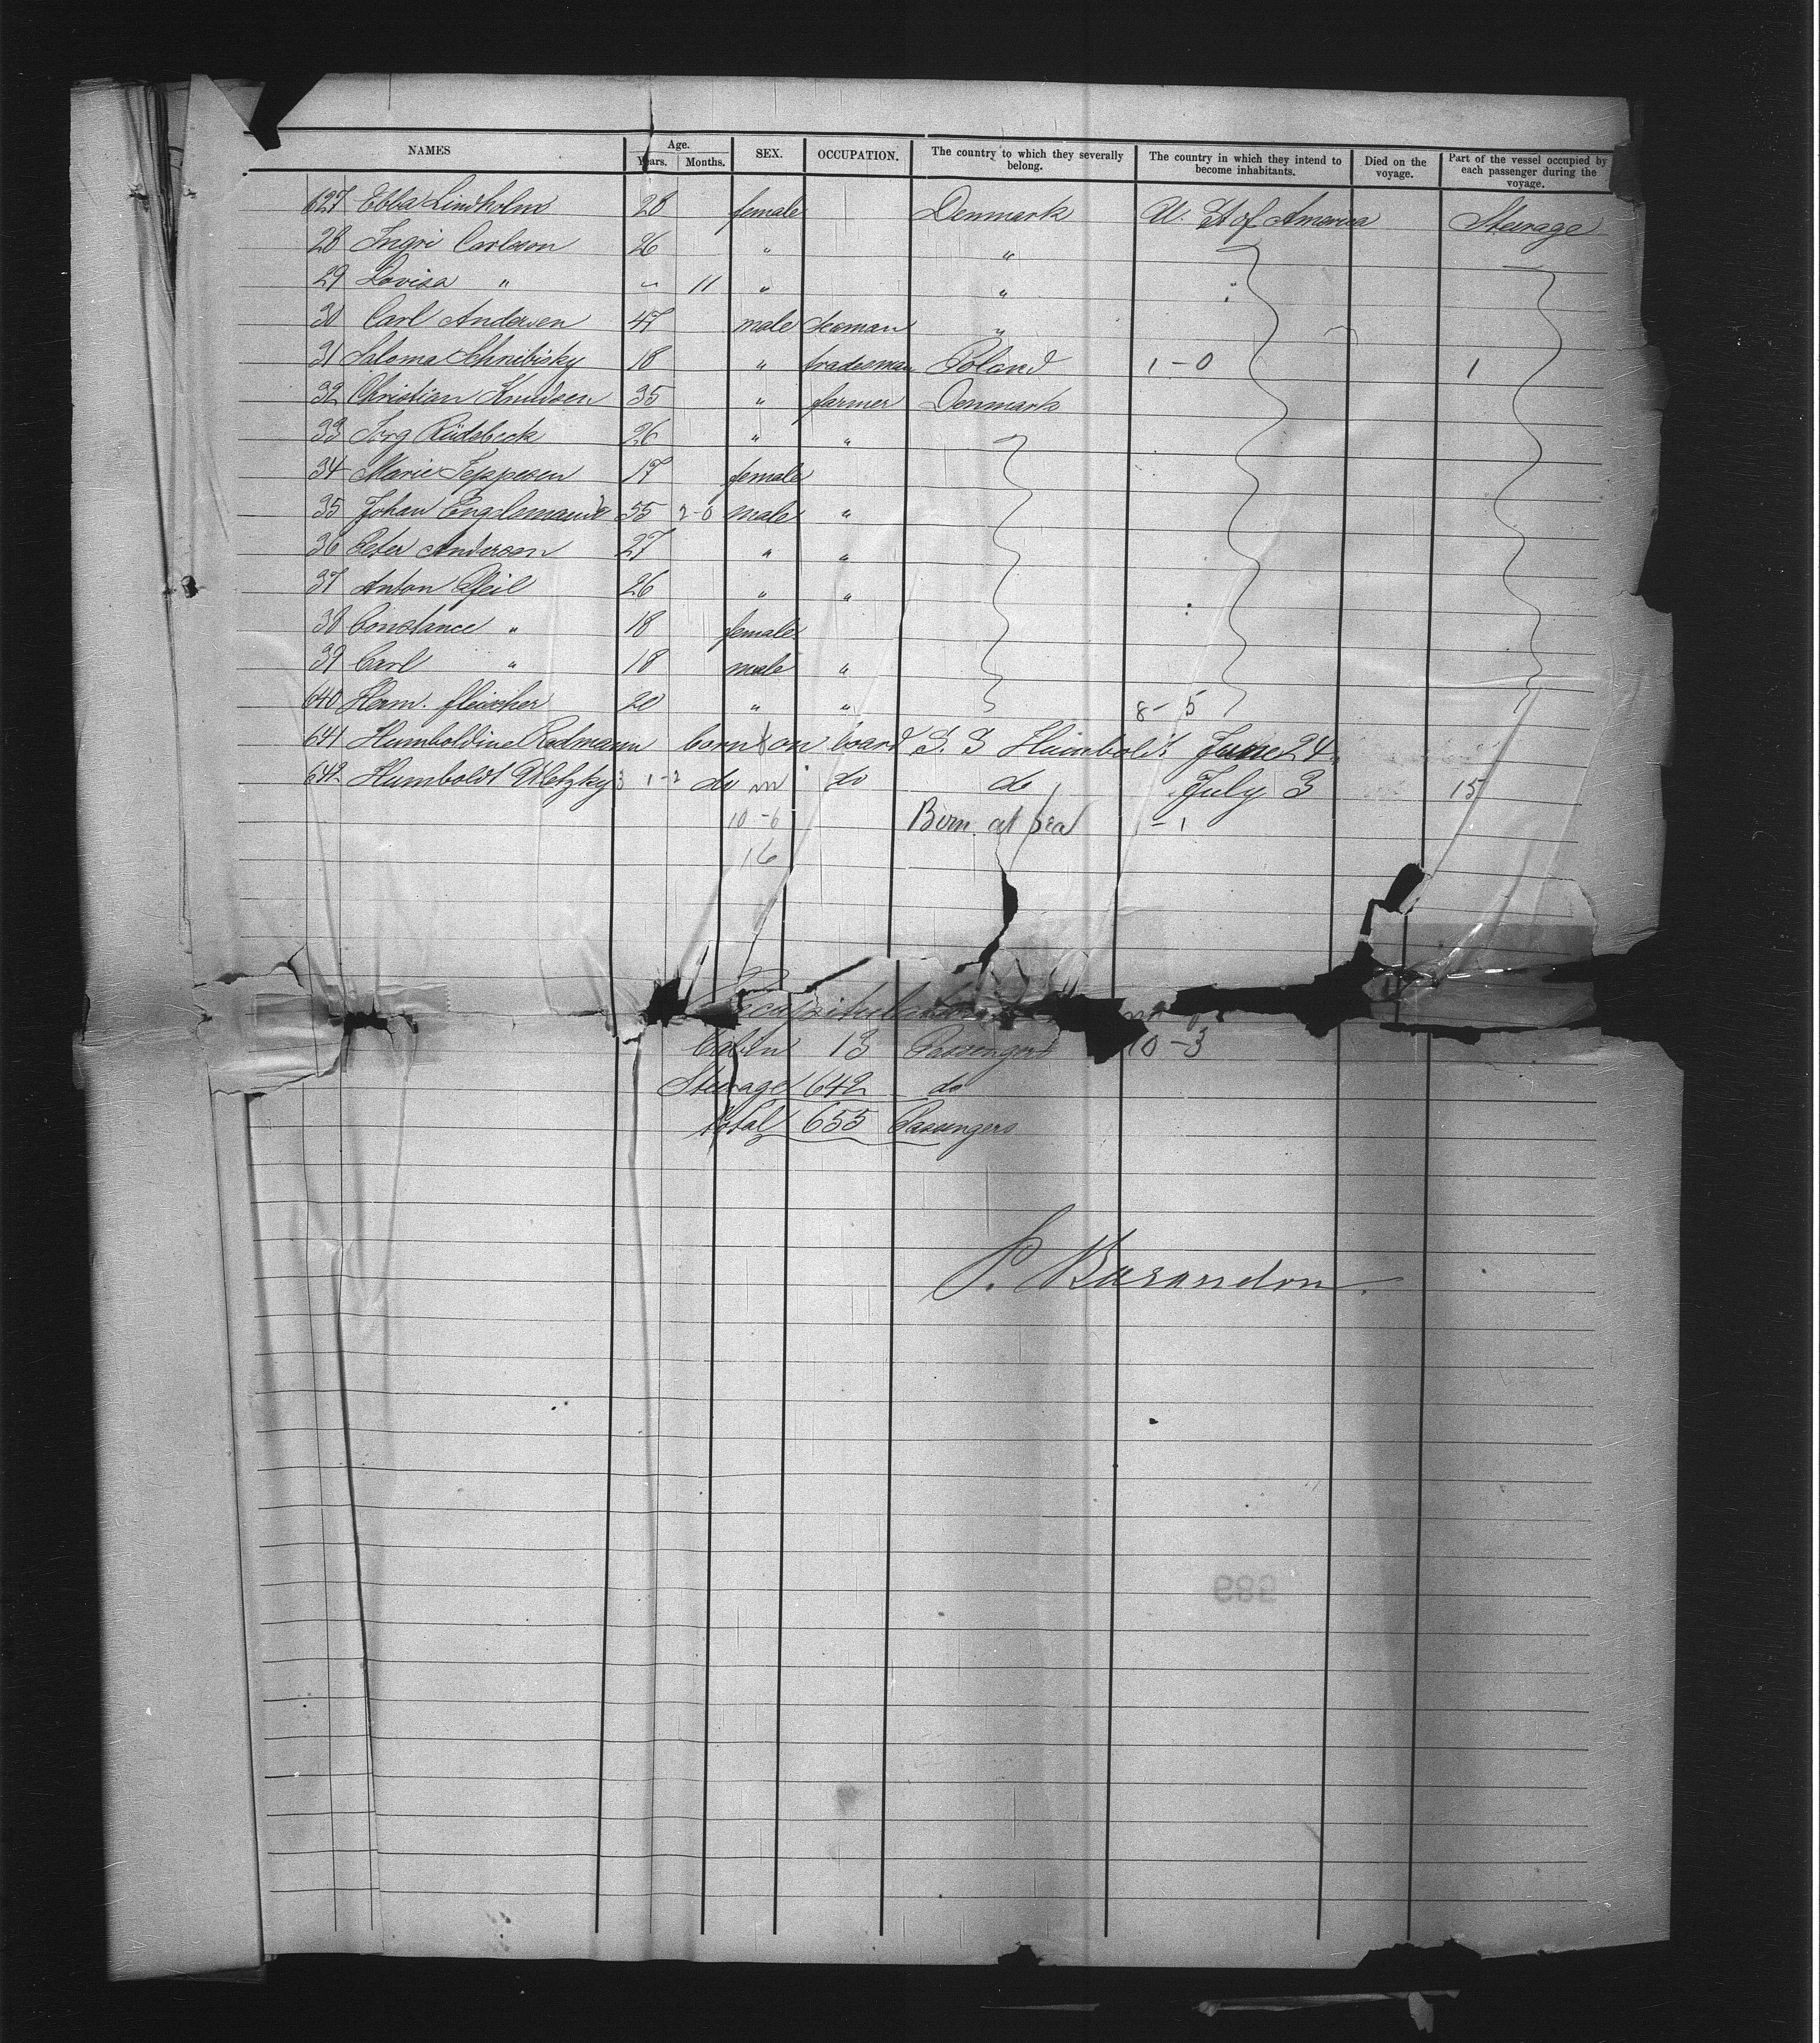 NAMES Age. SEX. OCCUPATION. The country to which they severally belong. The country in which they intend to become inhabitants. Died on the voyage. Part of the vessel occupied by each passenger during the voyage.
Years. Months.
627 Ebba Lindholm 28 female Denmark U. St of America Steerage
28 Ingri Carlson 26 " "
29 Lovisa " " 11 " "
30 Carl Andersen 47 male seaman "
31 Saloma Schnibisky 18 " tradesman Poland 1-0 1
32 Christian Knudsen 35 " farmer Denmark
33 Jörg Rüdebeck 26 " "
34 Marie Jeppesen 17 female
35 Johan 35 2-0 male "
36 Peter Andersen 27 " "
37 Anton Pfeil 26 " "
38 Constance " 18 female
39 Carl " 18 male "
640 Herm. fleischer 20 " " 8-5
641 Humboldine Redmann born on board S. S Humboldt June 24.
642 Humboldt 3 1-2 do m do do July 3 15
10-6 Born at sea 1-1
16
Recapitulation
Cabin 13 Passengers 10-3
Steerage 642 do
total 655 Passengers
P. Barandon.
989